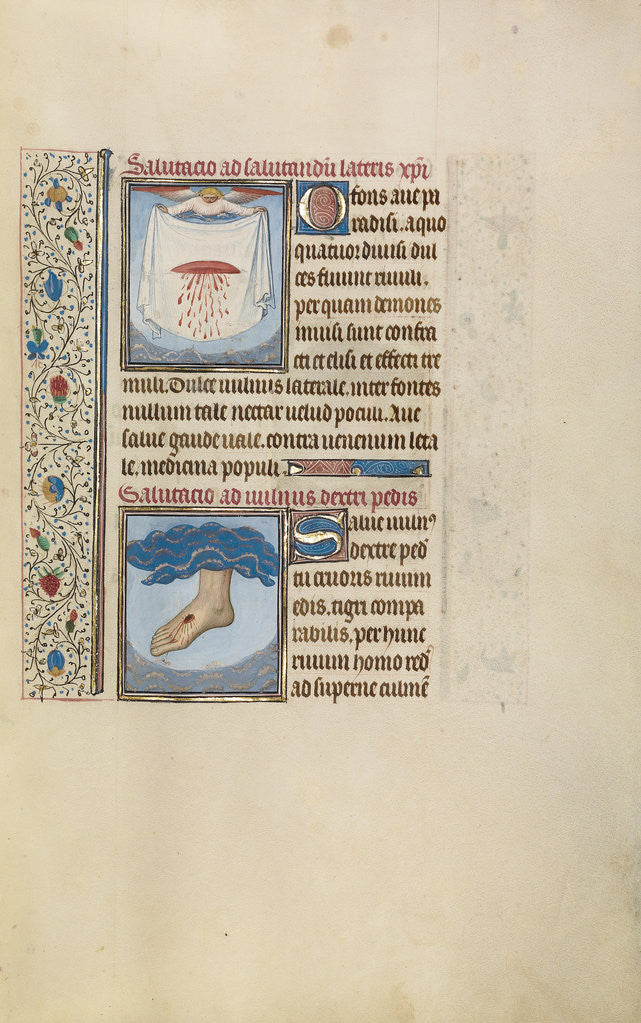 Salutacio ad salutandū lateris xpi
O fons aue pa
radisi. a quo
quatuor diuisi dul
ces fluunt riuuli.
per quam demones
inuisi sunt confra
cti et elisi et effecti tre
muli. Dulce uulnus laterale. inter fontes
nullum tale nectar uelud poculi. Aue
salue gaude uale. contra uenenum leta
le. medicina populi.
Salutacio ad uulnus dextri pedis
Salue uulnꝰ
dextre ped
tu cruoris riuum
edis. tigri compa
rabilis. per hunc
riuum homo red
ad superne culmē